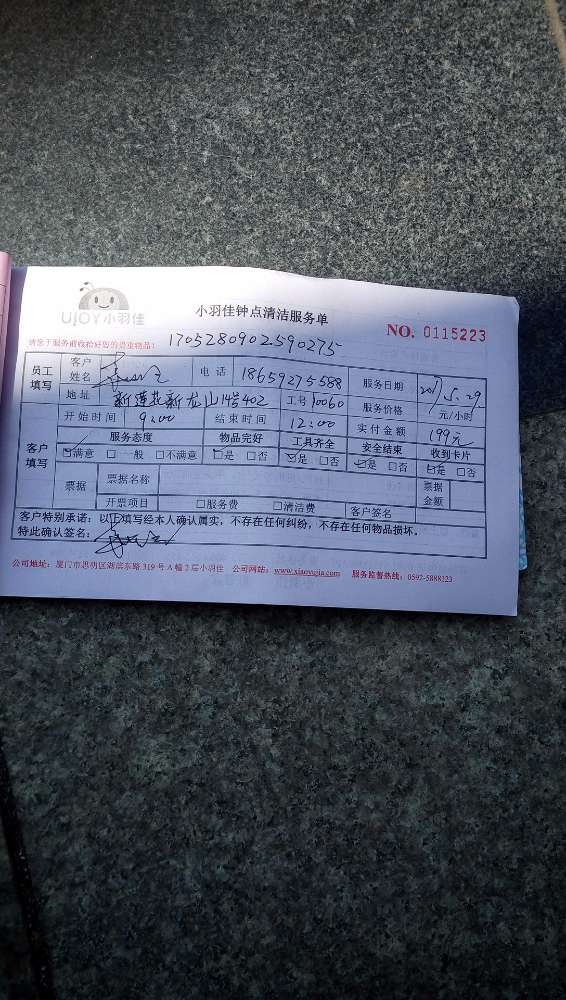 UJOY小羽佳
小羽佳钟点清洁服务单
NO. 0115223
请您于服务前收拾好您的贵重物品!
1705280902590275
员工填写 客户姓名 电话 18659275588 服务日期 2017.5.29
地址 新莲花新龙山14号402 工号 10060 服务价格 元/小时
开始时间 9:00 结束时间 12:00 实付金额 199元
客户填写 服务态度 物品完好 工具齐全 安全结束 收到卡片
☑满意 □一般 □不满意 ☑是 □否 ☑是 □否 ☑是 □否 ☑是 □否
票据 票据名称 票据金额
开票项目 □服务费 □清洁费 客户签名
客户特别承诺:以上填写经本人确认属实,不存在任何纠纷,不存在任何物品损坏。
特此确认签名:
公司地址:厦门市思明区湖滨东路319号A幢2层小羽佳 公司网站:www.xiaoyujia.com 服务监督热线:0592-5888323